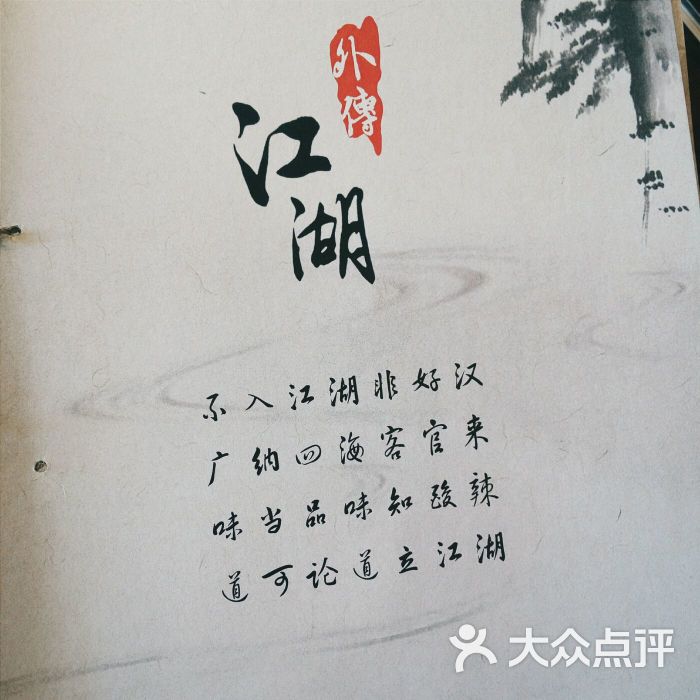 江湖
外傳
不入江湖非好汉
广纳四海客官来
味当品味知酸辣
道可论道立江湖
大众点评